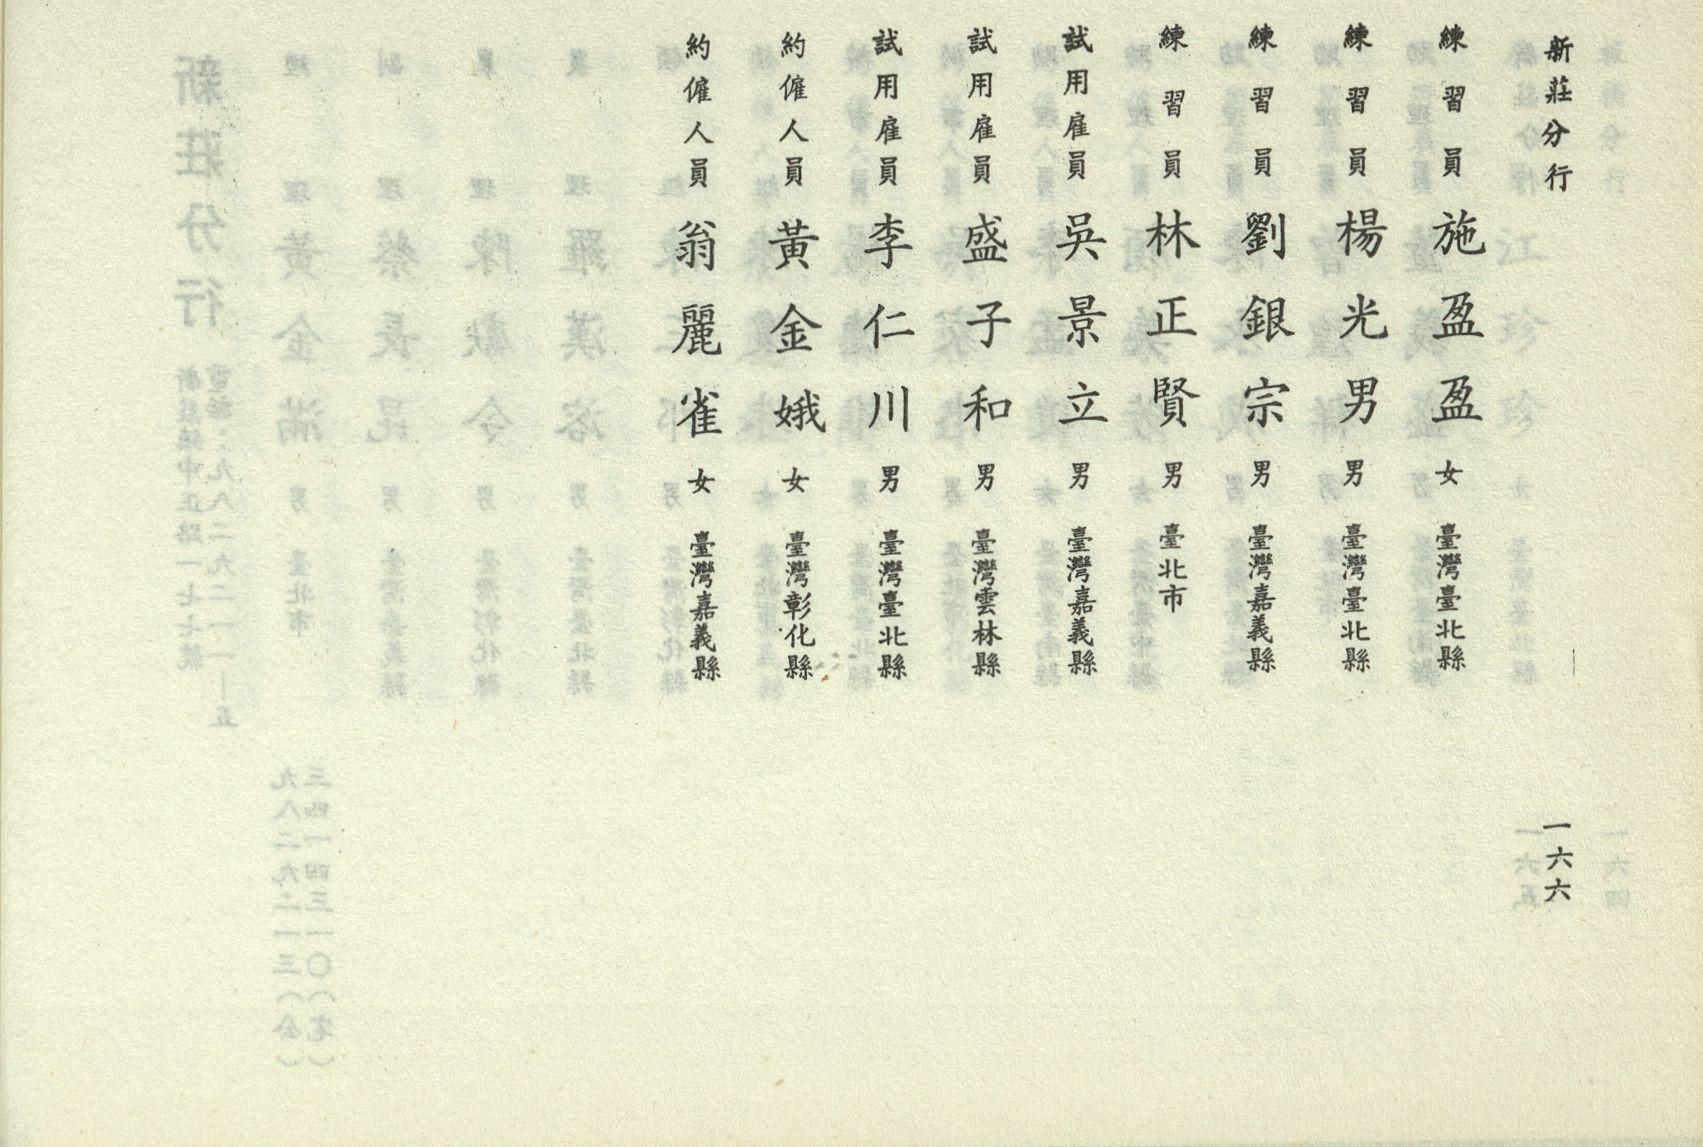 新莊分行
一六六
練習員 施盈盈 女 臺灣臺北縣
練習員 楊光男 男 臺灣臺北縣
練習員 劉銀宗 男 臺灣嘉義縣
練習員 林正賢 男 臺北市
試用雇員 吳景立 男 臺灣嘉義縣
試用雇員 盛子和 男 臺灣雲林縣
試用雇員 李仁川 男 臺灣臺北縣
約僱人員 黃金娥 女 臺灣彰化縣
約僱人員 翁麗雀 女 臺灣嘉義縣